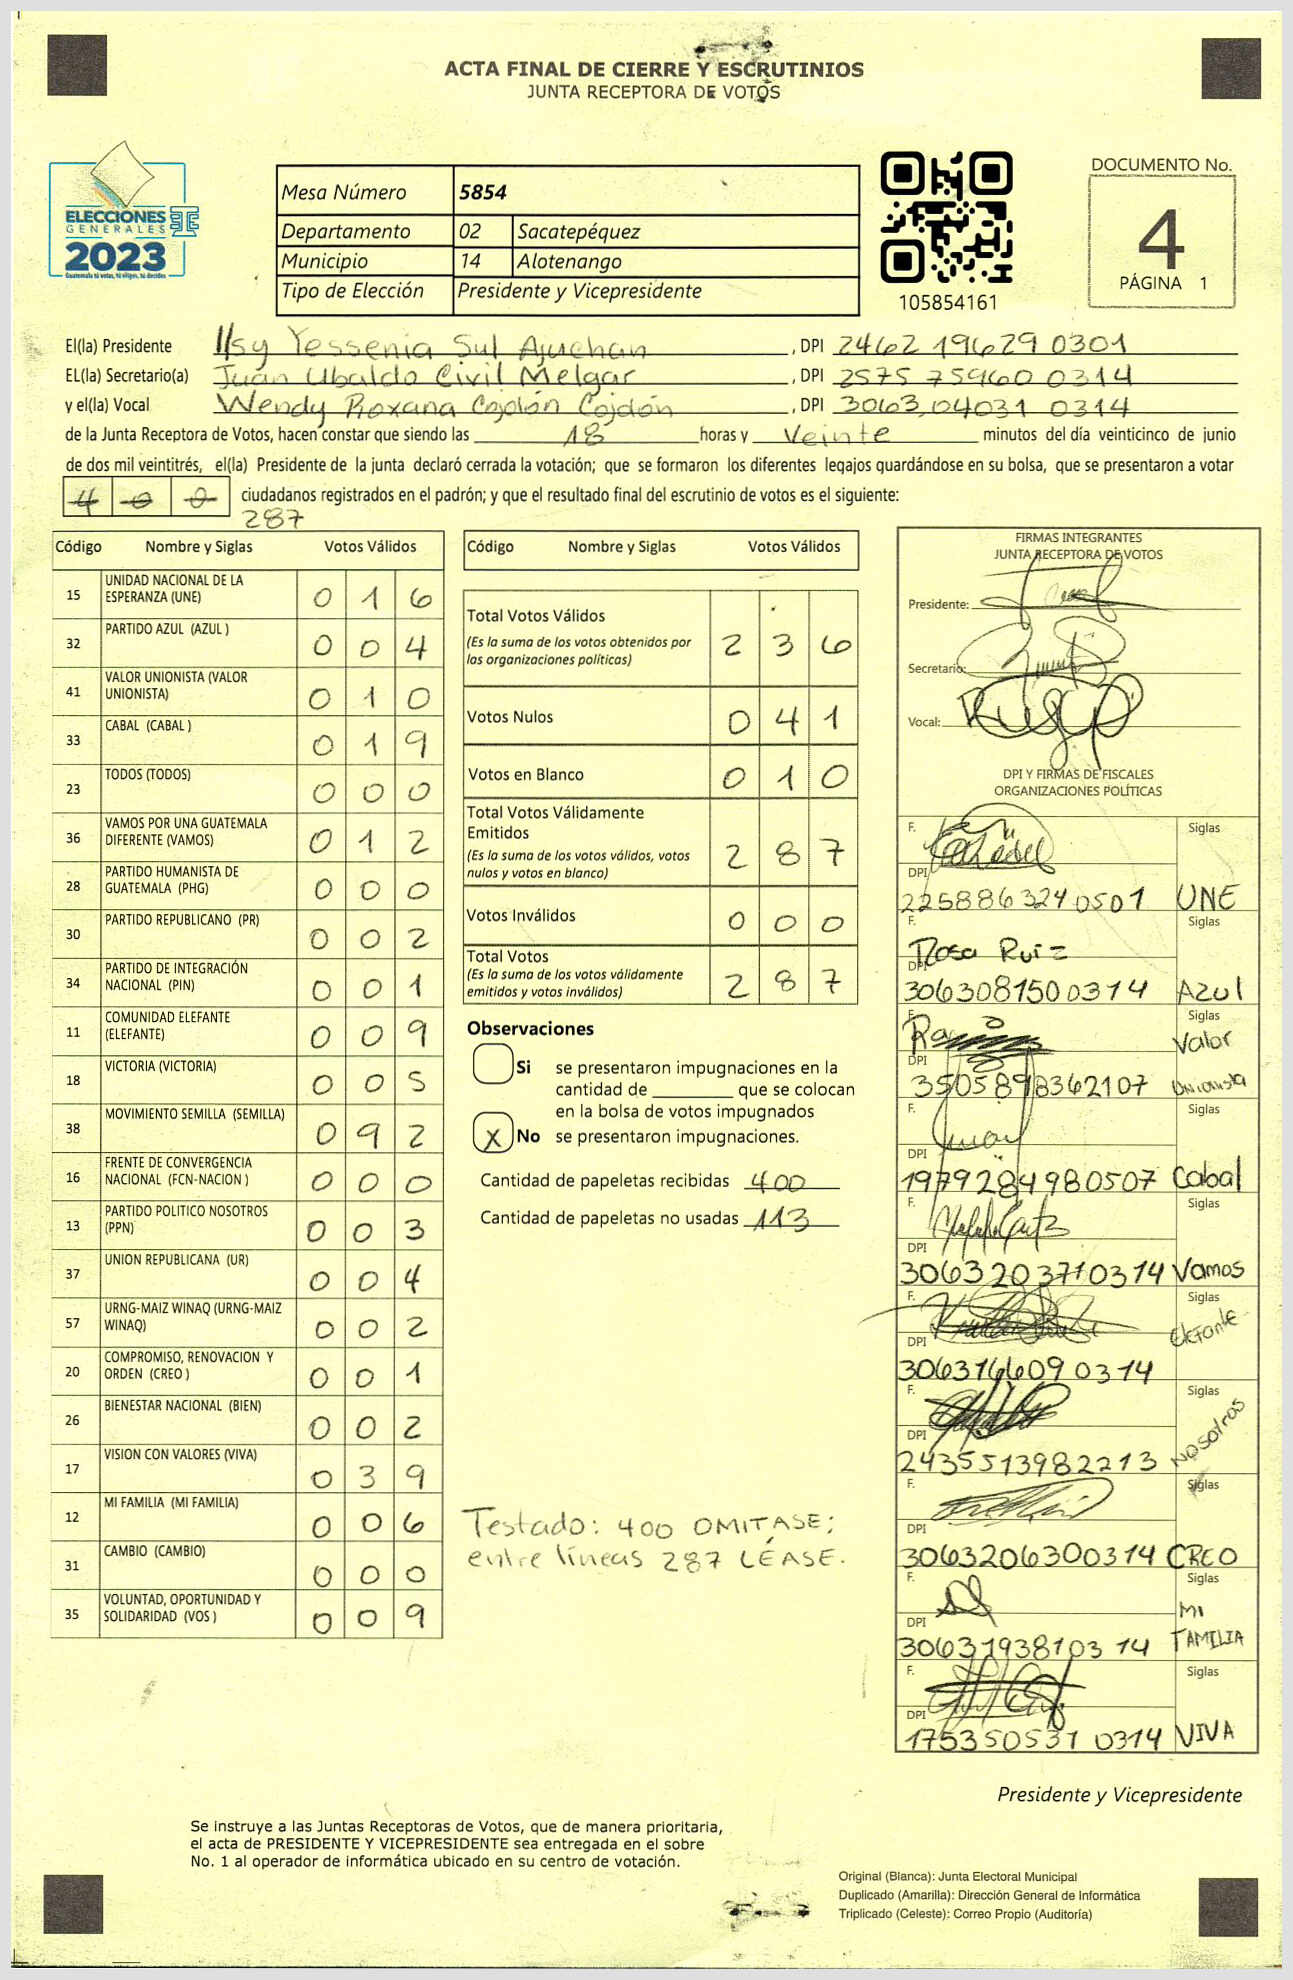 ACTA FINAL DE CIERRE Y ESCRUTINIOS
JUNTA RECEPTORA DE VOTOS
ELECCIONES
GENERALES
2023
Guatemala tú votas, tú eliges, tú decides
Mesa Número 5854
Departamento 02 Sacatepéquez
Municipio 14 Alotenango
Tipo de Elección Presidente y Vicepresidente
105854161
DOCUMENTO No.
4
PÁGINA 1
El(la) Presidente Ilsy Yessenia Sul Ajuchan , DPI 2462 19629 0301
EL(la) Secretario(a) Juan Ubaldo Civil Melgar , DPI 2575 75960 0314
y el(la) Vocal Wendy Roxana Cojolón Cojolón , DPI 3063 04031 0314
de la Junta Receptora de Votos, hacen constar que siendo las 18 horas y Veinte minutos del día veinticinco de junio
de dos mil veintitrés, el(la) Presidente de la junta declaró cerrada la votación; que se formaron los diferentes legajos guardándose en su bolsa, que se presentaron a votar
4 0 0 ciudadanos registrados en el padrón; y que el resultado final del escrutinio de votos es el siguiente:
287
Código Nombre y Siglas Votos Válidos
15 UNIDAD NACIONAL DE LA ESPERANZA (UNE) 0 1 6
32 PARTIDO AZUL (AZUL ) 0 0 4
41 VALOR UNIONISTA (VALOR UNIONISTA) 0 1 0
33 CABAL (CABAL ) 0 1 9
23 TODOS (TODOS) 0 0 0
36 VAMOS POR UNA GUATEMALA DIFERENTE (VAMOS) 0 1 2
28 PARTIDO HUMANISTA DE GUATEMALA (PHG) 0 0 0
30 PARTIDO REPUBLICANO (PR) 0 0 2
34 PARTIDO DE INTEGRACIÓN NACIONAL (PIN) 0 0 1
11 COMUNIDAD ELEFANTE (ELEFANTE) 0 0 9
18 VICTORIA (VICTORIA) 0 0 5
38 MOVIMIENTO SEMILLA (SEMILLA) 0 9 2
16 FRENTE DE CONVERGENCIA NACIONAL (FCN-NACION ) 0 0 0
13 PARTIDO POLITICO NOSOTROS (PPN) 0 0 3
37 UNION REPUBLICANA (UR) 0 0 4
57 URNG-MAIZ WINAQ (URNG-MAIZ WINAQ) 0 0 2
20 COMPROMISO, RENOVACION Y ORDEN (CREO ) 0 0 1
26 BIENESTAR NACIONAL (BIEN) 0 0 2
17 VISION CON VALORES (VIVA) 0 3 9
12 MI FAMILIA (MI FAMILIA) 0 0 6
31 CAMBIO (CAMBIO) 0 0 0
35 VOLUNTAD, OPORTUNIDAD Y SOLIDARIDAD (VOS ) 0 0 9
Código Nombre y Siglas Votos Válidos
Total Votos Válidos
(Es la suma de los votos obtenidos por las organizaciones políticas) 2 3 6
Votos Nulos 0 4 1
Votos en Blanco 0 1 0
Total Votos Válidamente Emitidos
(Es la suma de los votos válidos, votos nulos y votos en blanco) 2 8 7
Votos Inválidos 0 0 0
Total Votos
(Es la suma de los votos válidamente emitidos y votos inválidos) 2 8 7
Observaciones
Si se presentaron impugnaciones en la
cantidad de ________ que se colocan
en la bolsa de votos impugnados
X No se presentaron impugnaciones.
Cantidad de papeletas recibidas 400
Cantidad de papeletas no usadas 113
Testado: 400 OMITASE;
entre líneas 287 LÉASE.
FIRMAS INTEGRANTES
JUNTA RECEPTORA DE VOTOS
Presidente:
Secretario:
Vocal:
DPI Y FIRMAS DE FISCALES
ORGANIZACIONES POLÍTICAS
F. Siglas
DPI
225886324 0501 UNE
F. Rosa Ruiz Siglas
DPI
3063081500314 Azul
F. Siglas
DPI
3505898362107 Valor Unionista
F. Siglas
DPI
1979284980507 Cabal
F. Siglas
DPI
3063203710314 Vamos
F. Siglas
DPI
306316609 0314 Elefante
F. Siglas
DPI
2435513982213 Nosotros
F. Siglas
DPI
3063206300314 CREO
F. Siglas
DPI
3063193810314 MI FAMILIA
F. Siglas
DPI
175350531 0314 VIVA
Presidente y Vicepresidente
Se instruye a las Juntas Receptoras de Votos, que de manera prioritaria,
el acta de PRESIDENTE Y VICEPRESIDENTE sea entregada en el sobre
No. 1 al operador de informática ubicado en su centro de votación.
Original (Blanca): Junta Electoral Municipal
Duplicado (Amarilla): Dirección General de Informática
Triplicado (Celeste): Correo Propio (Auditoría)